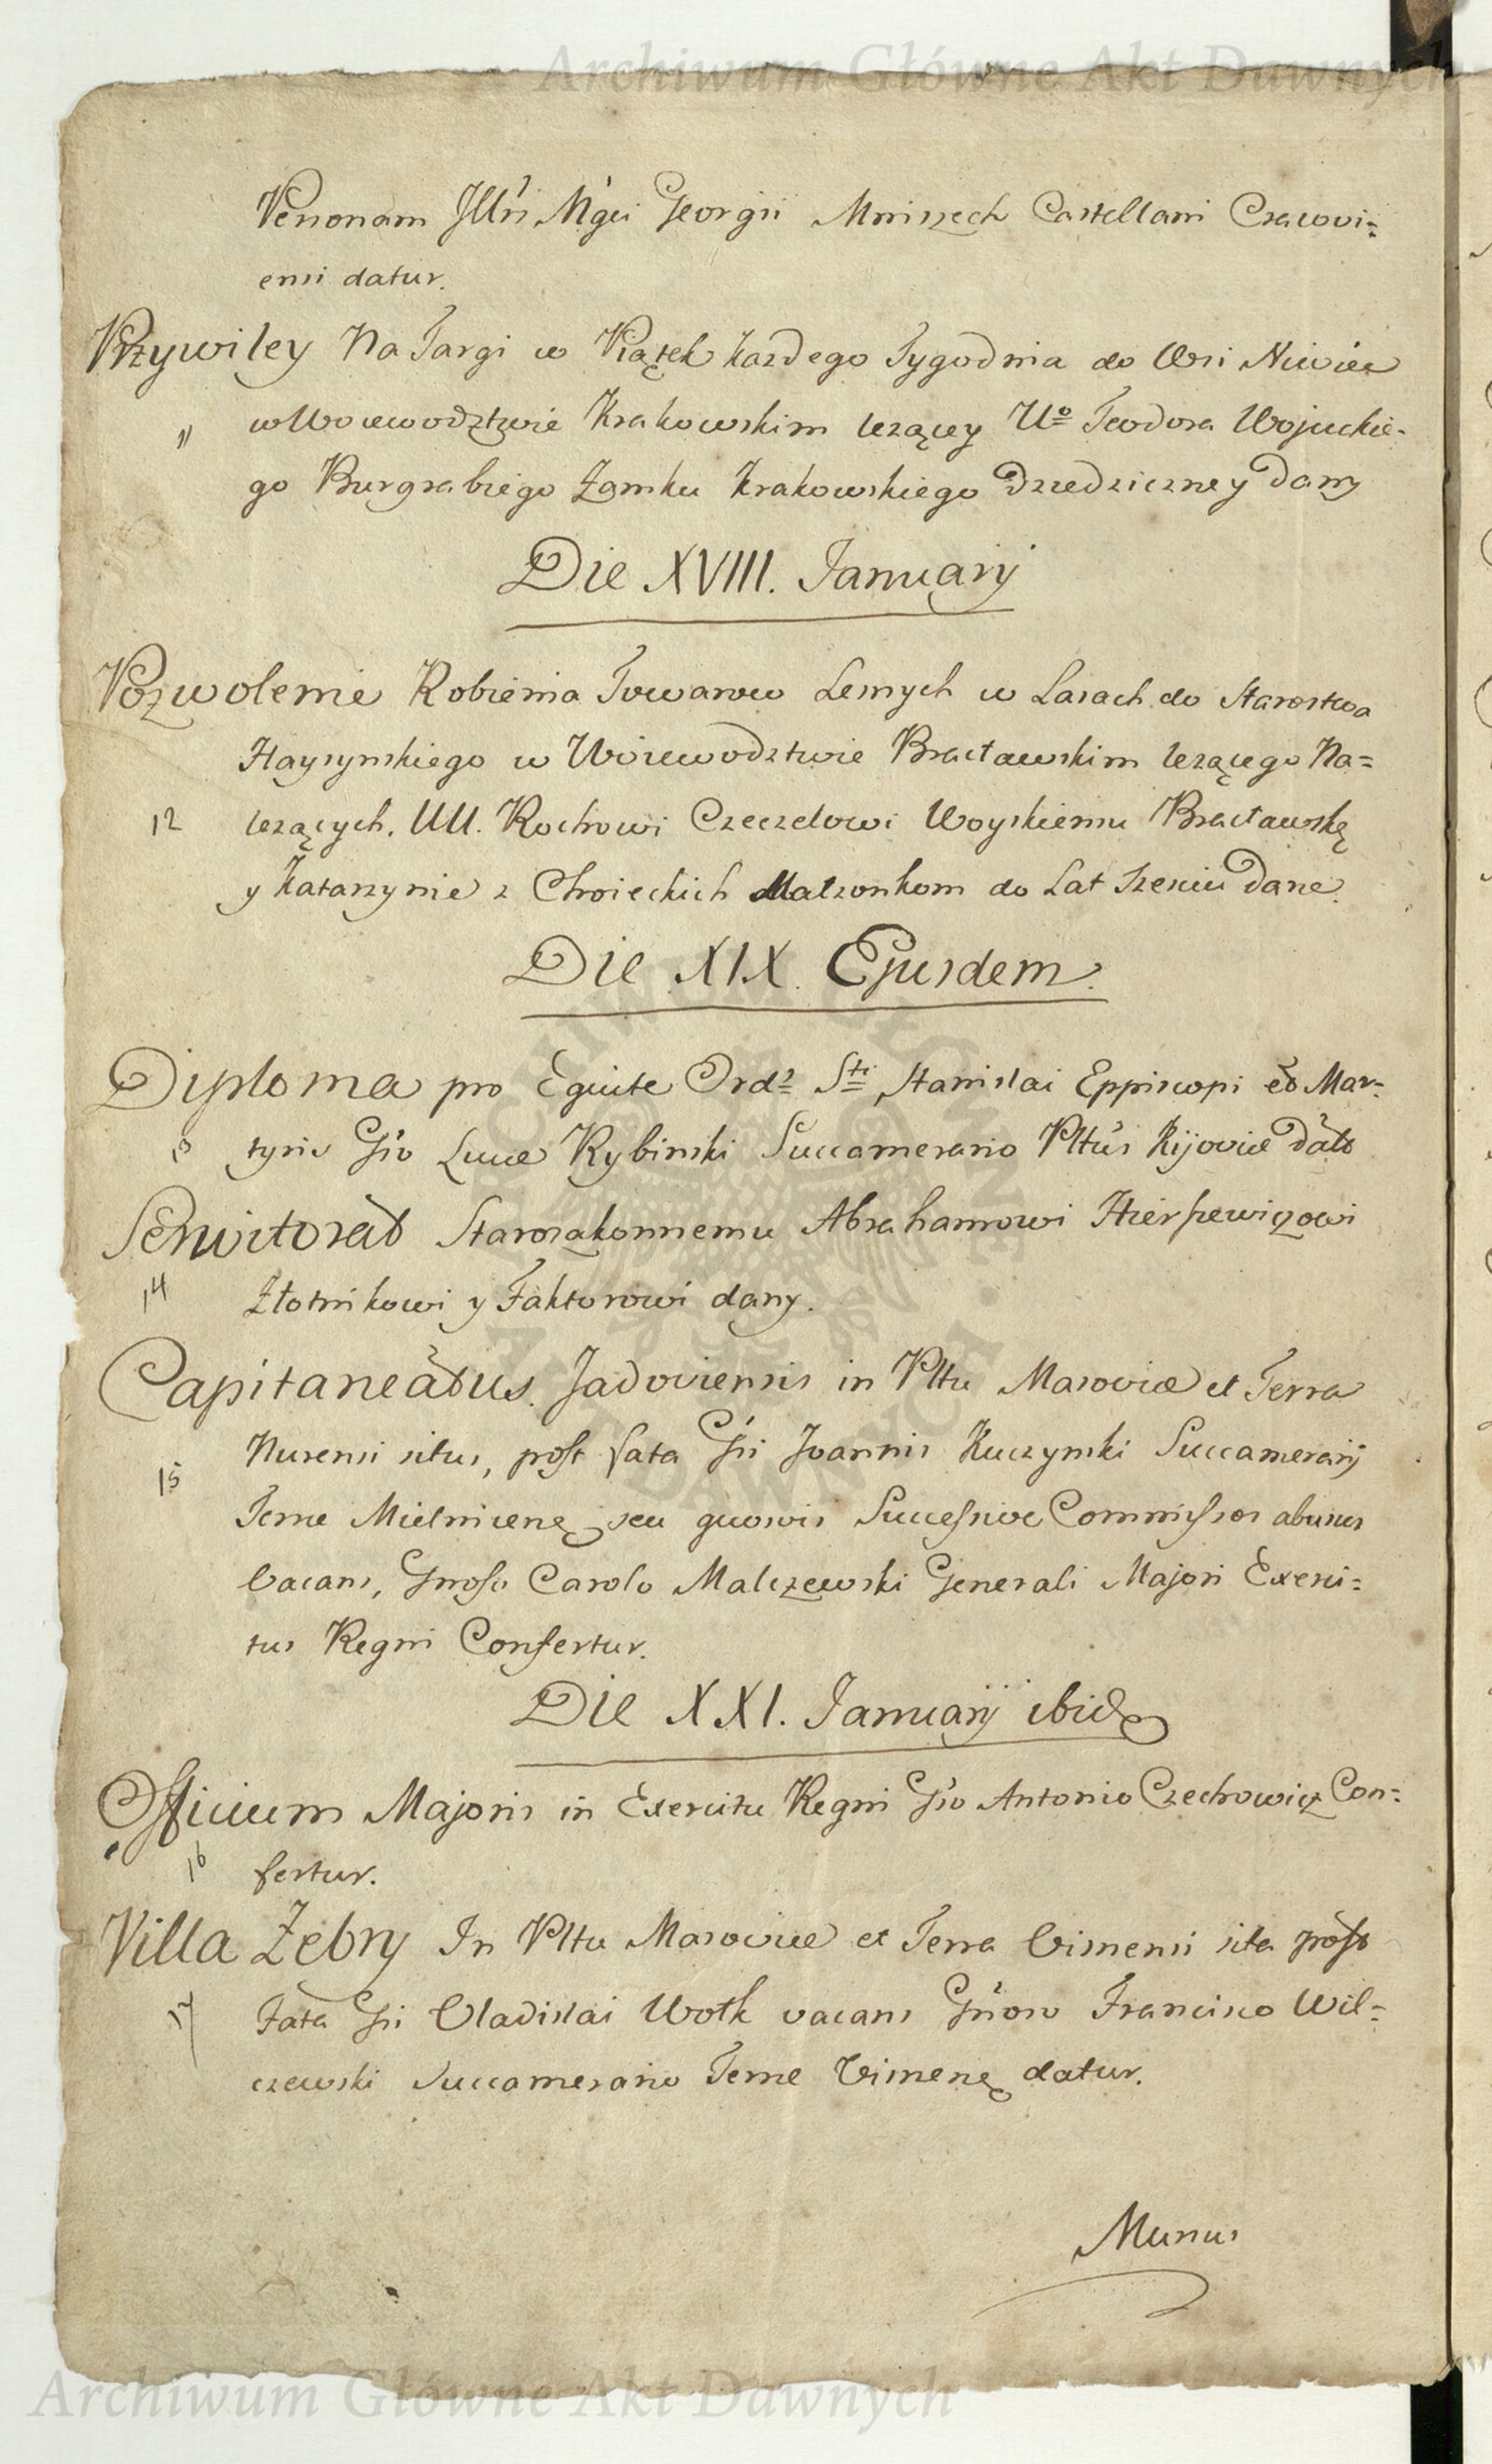 Archiwum Główne Akt Dawnych
Personam Illŕi Mģci Georgii Mniszech Castellani Cracovi=
ensi datur.
Przywiley Na Targi w Piątek każdego Tygodnia do Wsi Niwiec
11 w Woiewodztwie Krakowskim leżącey Uº Teodora Wojuckie-
go Burgrabiego Zamku Krakowskiego Dziedziczney Dany
Die XVIII. Januarij
Pozwolenie Robienia Towarow Lesnych w Lasach do Starostwa
Haysynskiego w Woiewodztwie Bracławskim leżącego Na=
12 leżących, UU. Rochowi Czeczelowi Woyskiemu Bracławskę
y Katarzynie z Choieckich Małżonkom do Lat Sześciu Dane.
Die XIX. Ejusdem.
Diploma pro Equite Ord: Sti Stanislai Eppiscopi et Mar=
13 tyris Gso Lucæ Rybinski Succamerario Pltus Kijoviæ Dat
Serwitorat Starozakonnemu Abrahamowi Herszewiczowi
14 Złotnikowi y Faktorowi dany.
Capitaneatus Jadoviensis in Pltu Masoviæ et Terra
Nurensi situs, post fata Gsi Joannis Kuczynski Succamerarij
15 Terræ Mielnicenę seu quovis Successive Commissos abusus
Vacans, Gnoso Carolo Malczewski Generali Majori Exerci=
tus Regni Confertur.
Die XXI. Januarij ibidę
Officium Majoris in Exercitu Regni Gso Antonio Czechowicz Con=
16 fertur.
Villa Zebry In Pltu Masoviæ et Terra Visnensi sita post
17 Fata Gsi Vladislai Wolk vacans Gnoso Francisco Wil=
czewski Succamerario Terræ Visnenę datur.
Munus
Archiwum Główne Akt Dawnych